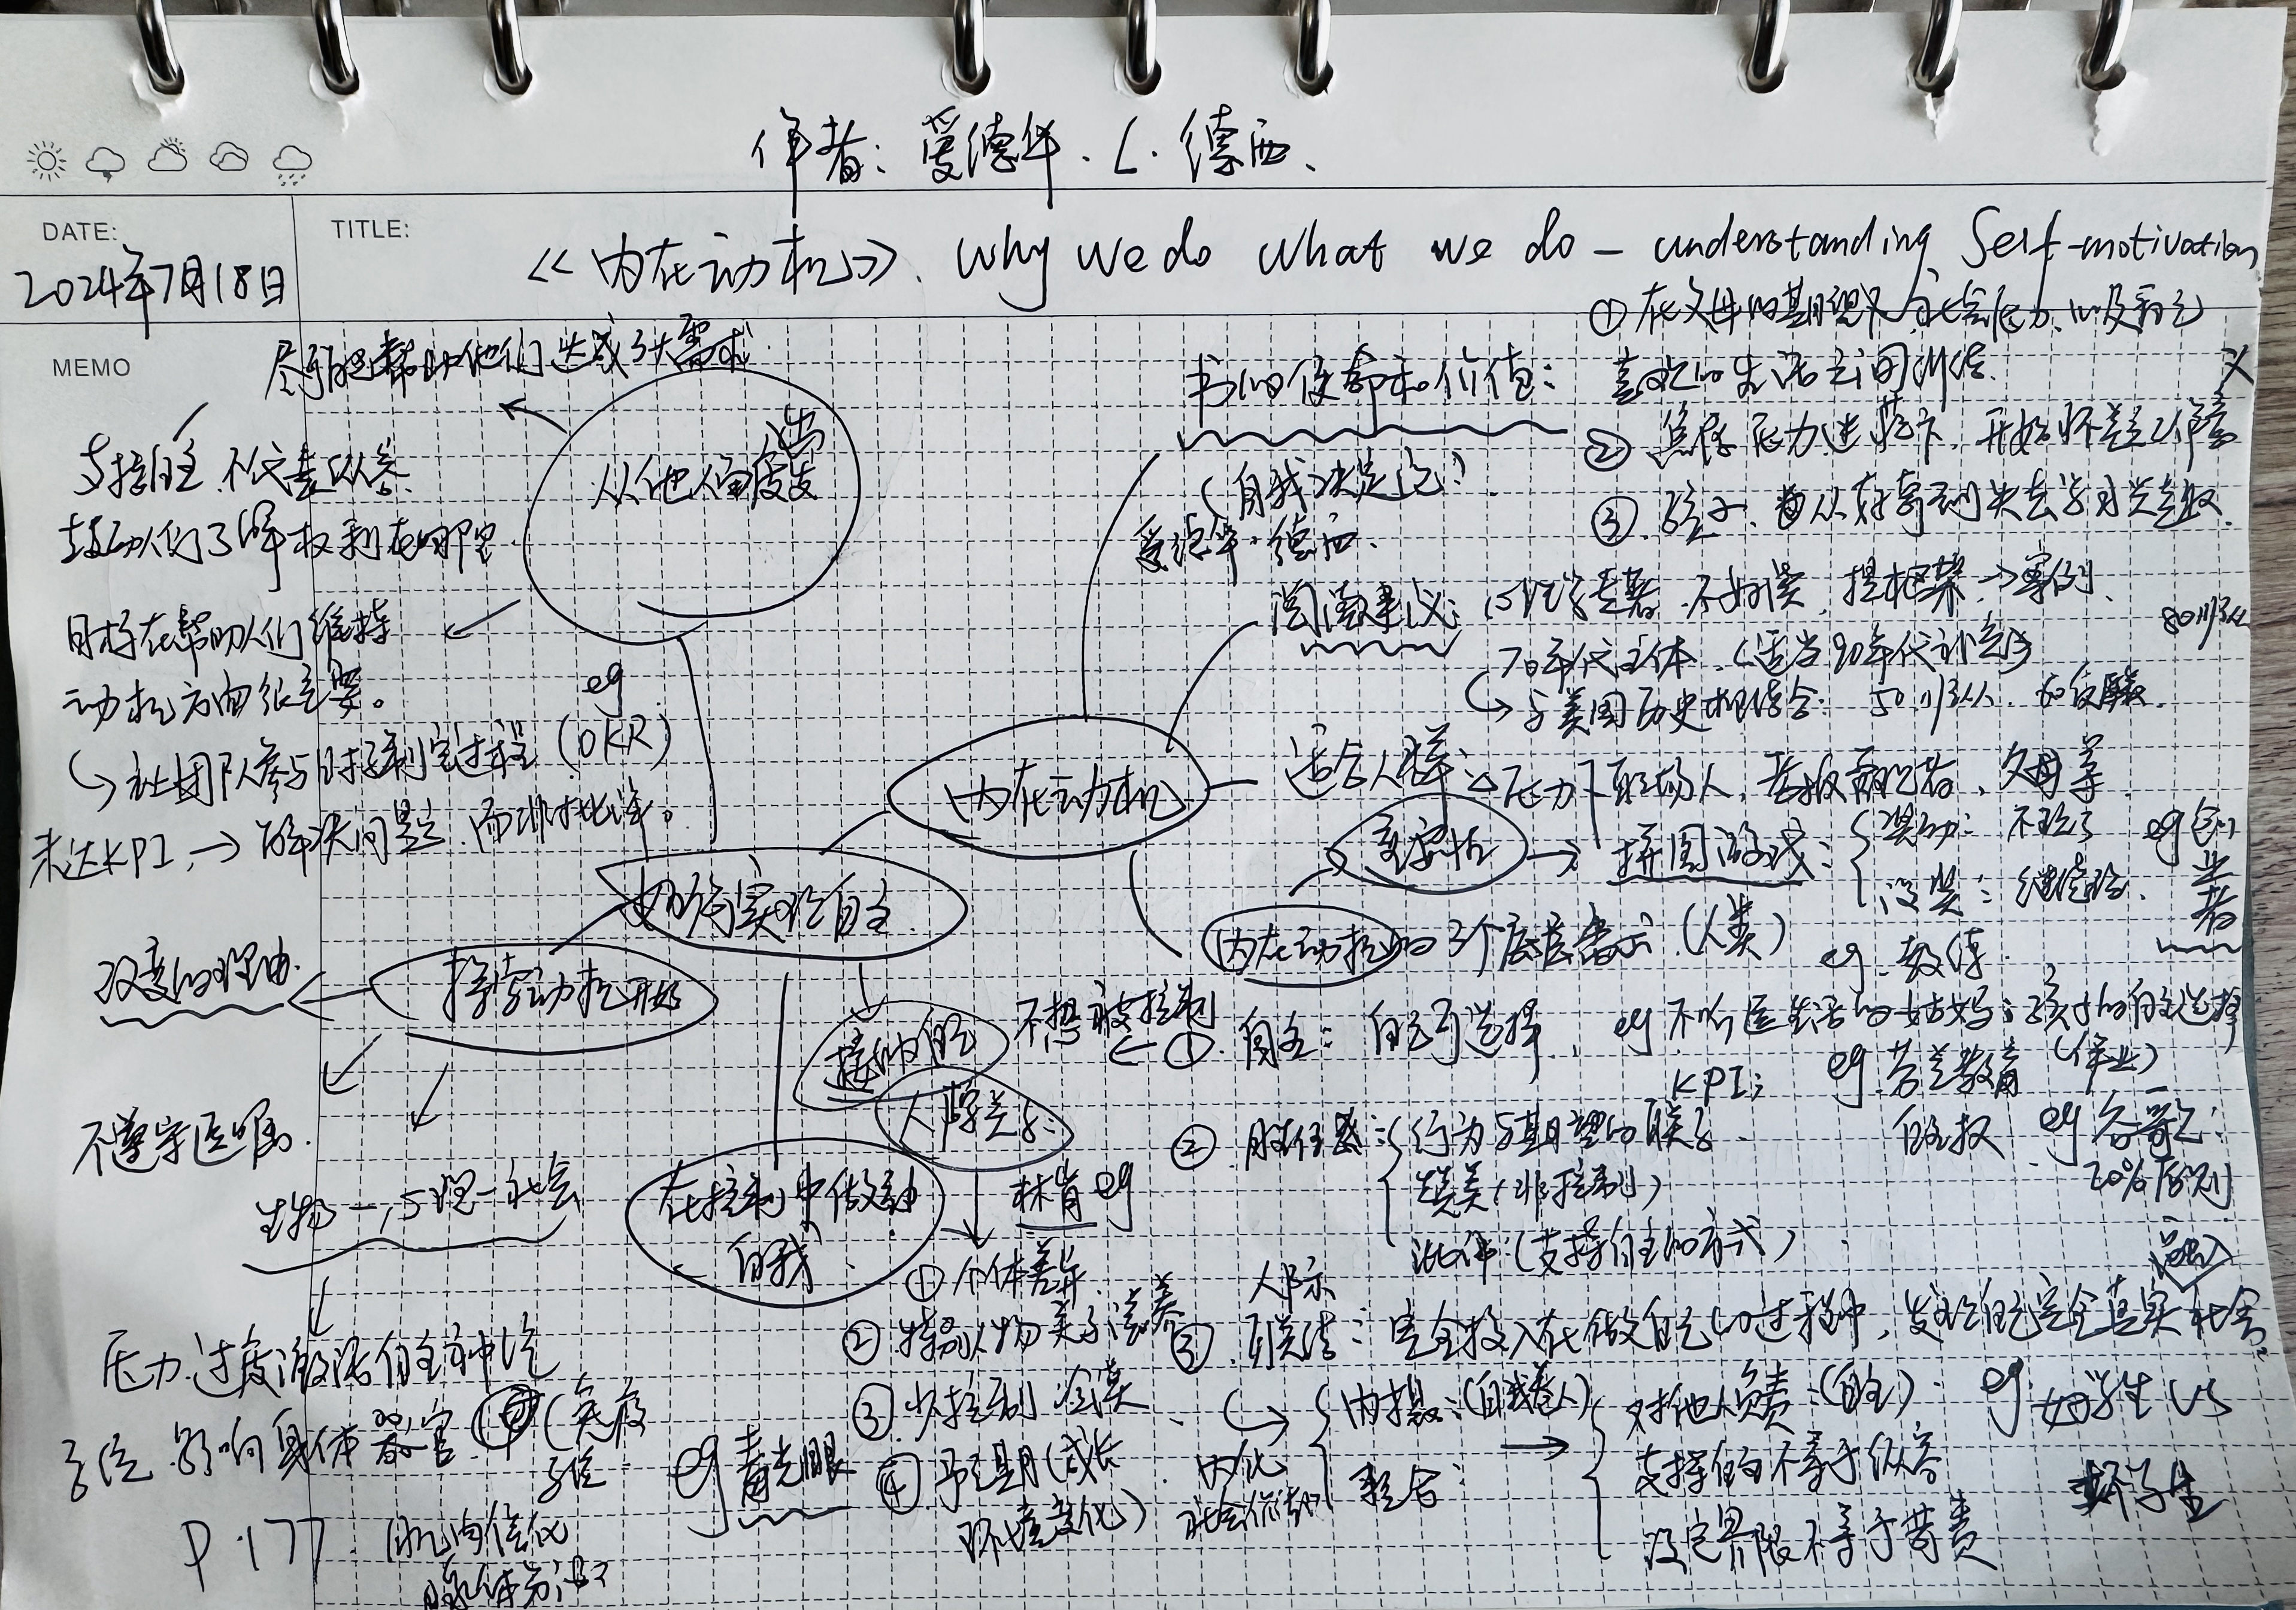 作者：爱德华·L·德西、
DATE:
2024年7月18日
TITLE:
《内在动机》. Why we do what we do - understanding Self-motivation
MEMO
尽可能帮助他们达成3大需求
从他人角度出发
支持自主 不代表纵容
鼓励人们了解权利在哪里
目标在帮助人们维持
动机方面很重要。
eg
让团队参与目标制定过程 (OKR)
未达KPI, → 解决问题，而非批评。
书的使命和价值：
(自我决定论)
爱德华·德西、
① 在父母的期望、社会压力、以及自己
喜欢的生活之间
② 压力 开始怀疑
③ 孩子 从好奇到失去学习兴趣
阅读建议：心理学 不好读，
案例、
70年代主体
与美国历史相结合
适合人群：压力下职场人，父母等
内在动机
拼图游戏：
奖励：不玩了
没奖：继续玩
eg 创业者
内在动机的3个底层需求 (人类)
eg. 教练
不想被控制
① 自主：自己可选择
eg 不听医生话的姑妈；孩子的自主选择
KPI;
(作业)
自主权 eg 谷歌：
20%原则
② 胜任感：行为与期望的联系
赞美 (非控制)
批评：(支持自主的方式)
人际
③ 联结：完全投入在做自己的过程中，发现自己完全真实
内化
社会价值
内摄：(自我卷入)
整合：
对他人负责：(自主)
支持自由不等于纵容
设定界限不等于苛责
eg 好学生 VS
坏学生
如何实现自主
探索动机开始
改变的理由
不遵守医嘱.
生物—心理—社会
压力过度激活自主神经
系统 影响身体器官 (免疫
系统
P.177. 肌肉僵化
腺体分泌
eg 青光眼
接纳自己
人际关系
林肯 eg
在控制中做
自我
① 个体差异
② 特别人物 关系滋养
③ 少控制
④ 预期 (成长
环境变化)